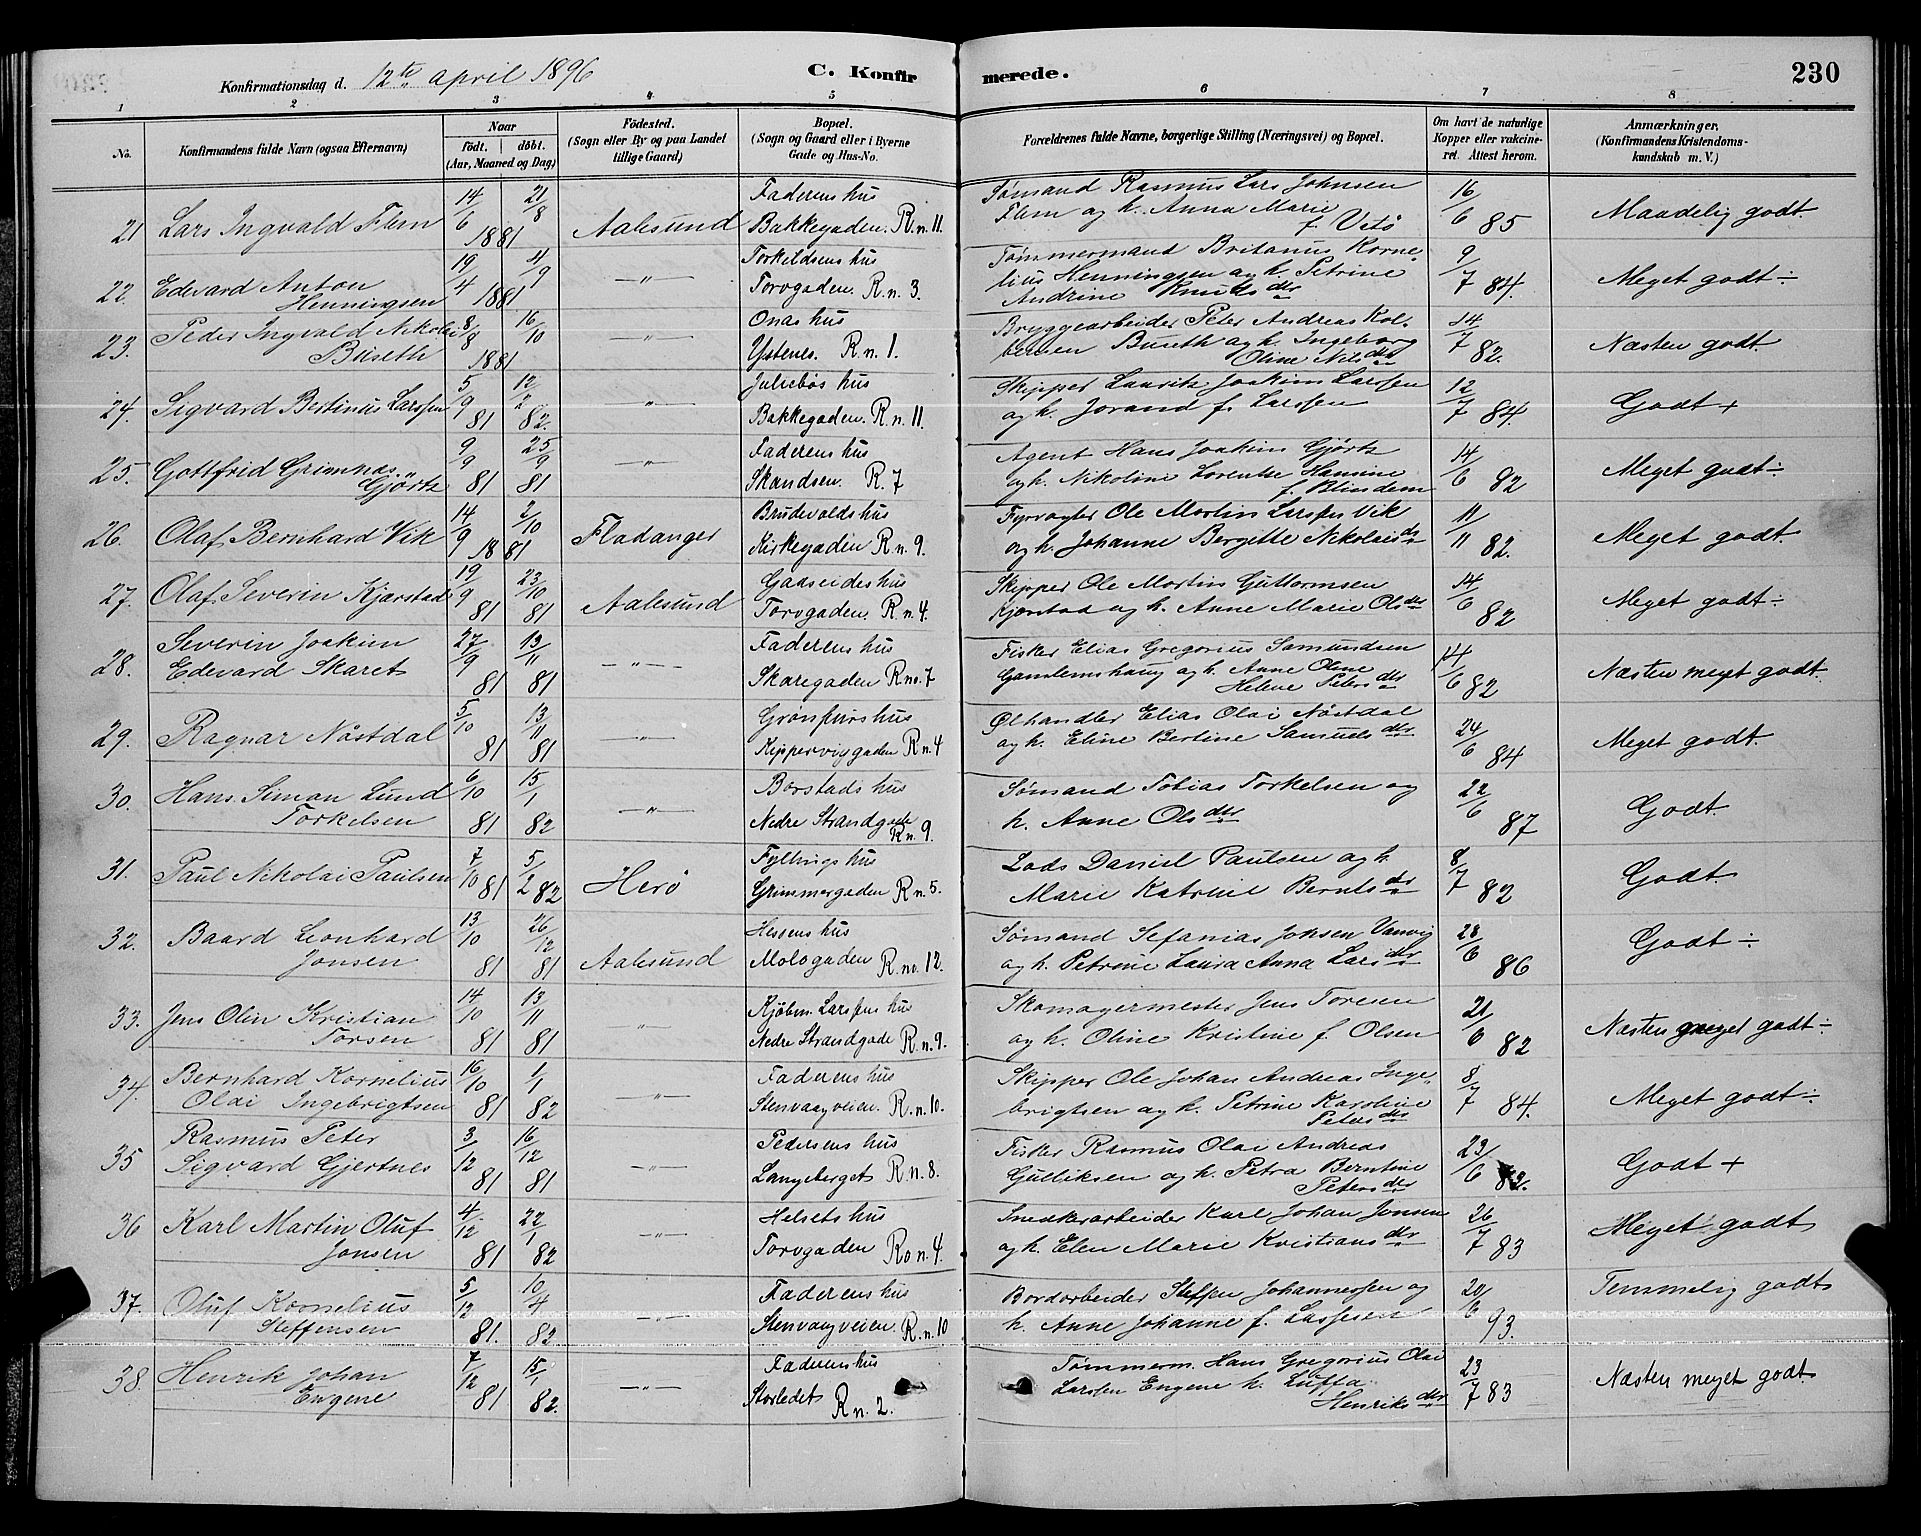 Konfirmationsdag d. 12te april 1896 C. Konfirmerede. 230
1 2 3 4 5 6 7 8
No. Konfirmandens fulde Navn (ogsaa Efternavn) Naar Födt. döbt. (Aar, Maaned og Dag) Födested. (Sogn eller By og paa Landet tillige Gaard) Bopæl. (Sogn og Gaard eller i Byerne Gade og Hus-No. Forældrenes fulde Navne, borgerlige Stilling (Næringsvei) og Bopæl. Om havt de naturlige Kopper eller vakcineret. Attest herom. Anmærkninger. (Konfirmandens Kristendomskundskab m. V.)
21 Lars Ingvald Flem 14/6 1881 21/8 Aalesund Faderens hus Bakkegaden. R. n. 11. Sømand Rasmus Lars Johnsen Flem og h. Anna Marie f. Vetø 16/6 85 Maadelig godt.
22. Edevard Anton Henningsen 19/4 1881 4/9 —"— Torkeldsens hus Torvgaden. R. n. 3. Tømmermand Britanus Kornelius Henningsen og h. Petrine Andrine Knutsdtr 9/7 84. Meget godt ÷
23. Peder Ingvald Nikolai Buseth 8/8 1881 16/10 —"— Onas hus Ystenes. R. n. 1. Bryggearbeider Peter Andreas Kolbensen Buseth og h. Ingeborg Oline Nilsdtr 14/7 82. Næsten godt.
24. Sigvard Bertinus Larssen 5/9 81 12/2 82. —"— Juliebøs hus Bakkegaden. R. n. 11. Skipper Laurits Joakim Larssen og h. Jorand f. Larssen 12/7 84. Godt +
25. Gottfrid Grimnæs Gjørtz 9/9 81 25/9 81 —"— Faderens hus Skandsen. R. 7 Agent Hans Joakim Gjørtz og h. Nikoline Lorentse Hannine f. Blindem 14/6 82 Meget godt ÷
26. Olaf Bernhard Vik 14/9 1881 2/10 Fladanger Brudevolds hus Kirkegaden R. n. 9. Fyrvogter Ole Martin Larssen Vik og h. Johanne Bergitte Nikolaidtr 11/11 82. Meget godt.
27. Olaf Severin Kjærstad 19/9 81 23/10 81 Aalesund Gaaseides hus Torvgaden. R. n. 4. Skipper Ole Martin Guttormsen Kjærstad og h. Anne Marie Olsdtr 14/6 82 Meget godt ÷
28. Severin Joakim Edevard Skaret 27/9 81 13/11 81 —"— Faderens hus Skaregaden R no. 7 Fisker Elias Gregorius Samundsen Gamlemshaug og h. Anne Oline Helene Petersdtr 14/6 82 Næsten meget godt.
29. Ragnar Nøstdal 5/10 81 13/11 81 —"— Grønfurs hus Kippervigsgaden R n. 4 Ølhandler Elias Olai Nøstdal og h. Eline Bertine Samuelsdtr 24/6 84 Meget godt.
30. Hans Simon Lund Torkelsen 6/10 81 15/1 82 —"— Børstads hus Nedre Strandgade R. n. 9. Sømand Tobias Torkelsen og h. Anne Olsdtr 22/6 87 Godt.
31. Paul Nikolai Paulsen 7/10 81 5/2 82 Herø Fyllings hus Grimmergaden R n. 5. Lods Daniel Paulsen og h. Marie Katrine Berntsdtr 8/7 82 Godt.
32. Baard Leonhard Jonsen 13/10 81 26/12 81 Aalesund Hessens hus Mologaden R. no. 12. Sømand Sefanias Johsen Vanvig og h. Petrine Laura Anna Larsdtr 28/6 86 Godt ÷
33. Jens Olin Kristian Torsen 14/10 81 13/11 81 —"— Kjøbm. Larssens hus Nedre Strandgade R. n. 9. Skomagermester Jens Toresen og h. Oline Kristine f. Olsen 21/6 82 Næsten meget godt ÷
34. Bernhard Kornelius Olai Ingebrigtsen 16/10 81 1/1 82 —"— Faderens hus Stenvaagveien. R. n. 10. Skipper Ole Johan Andreas Ingebrigtsen og h. Petrine Karoline Petersdtr 8/7 84. Meget godt ÷
35 Rasmus Peter Sigvard Gjertnes 3/12 81 16/12 81 —"— Pedersens hus Langeberget R. n. 8. Fisker Rasmus Olai Andreas Gulliksen og h. Petra Berntine Petersdtr 23/6 82. Godt +
36 Karl Martin Oluf Jonsen 4/12 81 22/1 82 —"— Helsets hus Torvgaden Ro n. 4. Snedkerarbeider Karl Johan Jonsen og h. Elen Marie Kristiansdtr 26/7 83 Meget godt
37. Oluf Kornelius Steffensen 5/12 81. 10/4 82. —"— Faderens hus Stenvaagveien. R. n. 10 Bordarbeider Steffen Johannessen og h. Anne Johanne f. Lassesen 20/6 93. Temmelig godt
38. Henrik Johan Eugene 7/12 81 15/1 82. —"— Faderens hus Storledet R n. 2. Tømmerm. Hans Gregorius Olai Larssen Eugene h. Luffa Henriksdtr 23/7 83 Næsten meget godt.